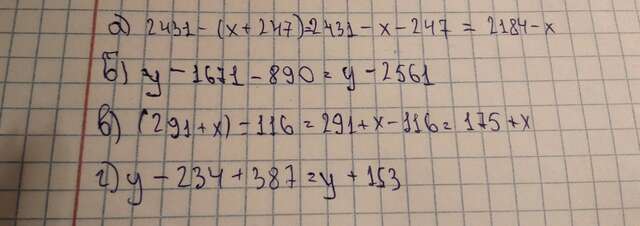 а) 2431 - (x + 247) = 2431 - x - 247 = 2184 - x
б) y - 1671 - 890 = y - 2561
в) (291 + x) - 116 = 291 + x - 116 = 175 + x
г) y - 234 + 387 = y + 153